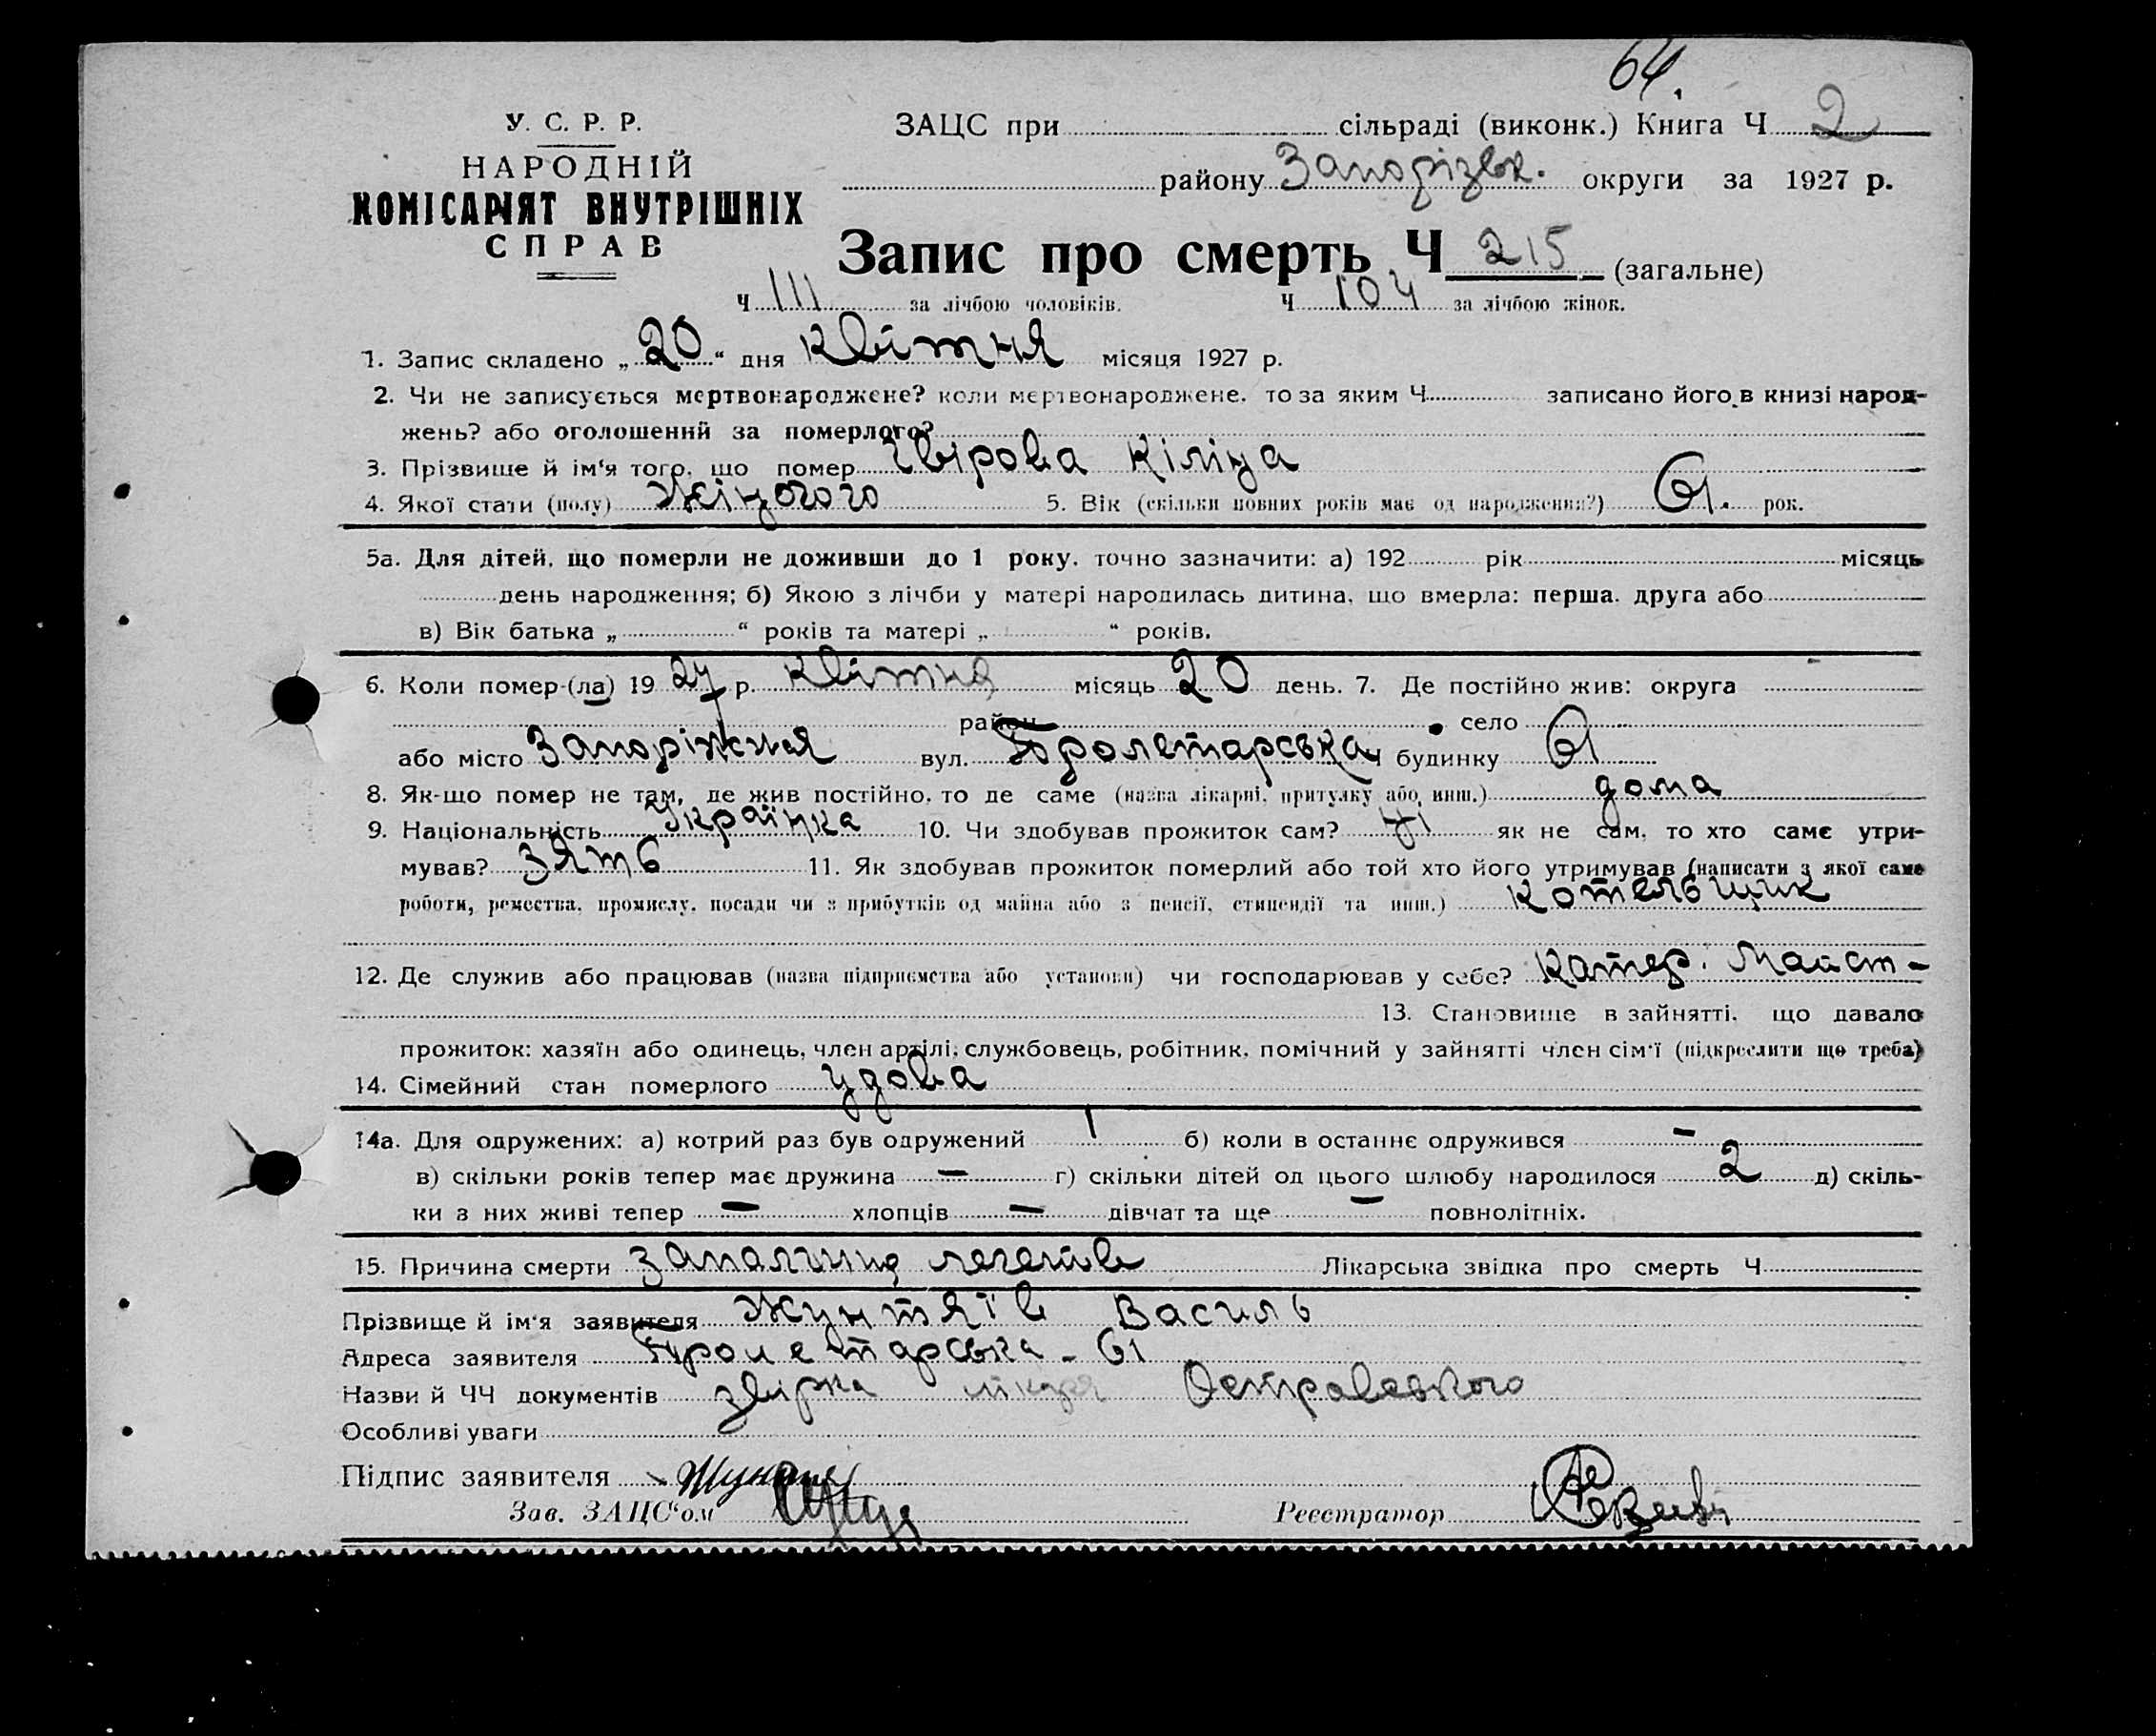 64.
У. С. Р. Р.
НАРОДНІЙ
КОМІСАРІЯТ ВНУТРІШНІХ
СПРАВ
ЗАЦС при сільраді (виконк.) Книга Ч 2
району Запорізьк. округи за 1927 р.
Запис про смерть Ч 215 (загальне)
Ч 111 за лічбою чоловіків. Ч 104 за лічбою жінок.
1. Запис складено „20“ дня квітня місяця 1927 р.
2. Чи не записується мертвонароджене? коли мертвонароджене, то за яким Ч записано його в книзі народ-
жень? або оголошений за померлого?
3. Прізвище й ім‘я того, що помер Звірова Кіліна
4. Якої стати (полу) Жіночого 5. Вік (скільки повних років має од народження?) 61. рок.
5а. Для дітей, що померли не доживши до 1 року, точно зазначити: а) 192 рік місяць
день народження; б) Якою з лічби у матері народилась дитина, що вмерла: перша, друга або
в) Вік батька „ “ років та матері „ “ років.
6. Коли помер-(ла) 1927 р. квітня місяць 20 день. 7. Де постійно жив: округа
район село
або місто Запоріжжя вул. Пролетарська, будинку 61
8. Як-що помер не там, де жив постійно, то де саме (назва лікарні, притулку або инш.) дома
9. Національність Українка 10. Чи здобував прожиток сам? ні як не сам, то хто саме утри-
мував? зять 11. Як здобував прожиток померлий або той хто його утримував (написати з якої саме
роботи, ремества, промислу, посади чи з прибутків од майна або з пенсії, стипендії та инш.) котельщик
12. Де служив або працював (назва підприємства або установи) чи господарював у себе? Катер. Майст-
13. Становище в зайнятті, що давало
прожиток: хазяїн або одинець, член артілі, службовець, робітник, помічний у зайнятті член сім‘ї (підкреслити що треба)
14. Сімейний стан померлого удова
14а. Для одружених: а) котрий раз був одружений 1 б) коли в останнє одружився -
в) скільки років тепер має дружина — г) скільки дітей од цього шлюбу народилося 2 д) скіль-
ки з них живі тепер — хлопців — дівчат та ще — повнолітніх.
15. Причина смерти запалення легенів Лікарська звідка про смерть Ч
Прізвище й ім‘я заявителя Жунтяїв Василь
Адреса заявителя Пролетарська - 61
Назви й ЧЧ документів лікаря Островського
Особливі уваги
Підпис заявителя
Зав. ЗАЦС‘ом Реєстратор